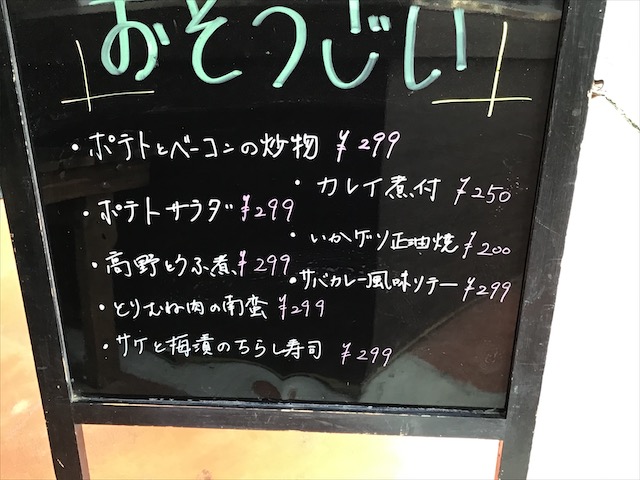 おそうじい
・ポテトとベーコンの炒物 ¥299
・カレイ煮付 ¥250
・ポテトサラダ ¥299
・いかゲソ正油焼 ¥200
・高野とうふ煮 ¥299
・サバカレー風味ソテー ¥299
・とりむね肉の南蛮 ¥299
・サケと梅漬のちらし寿司 ¥299